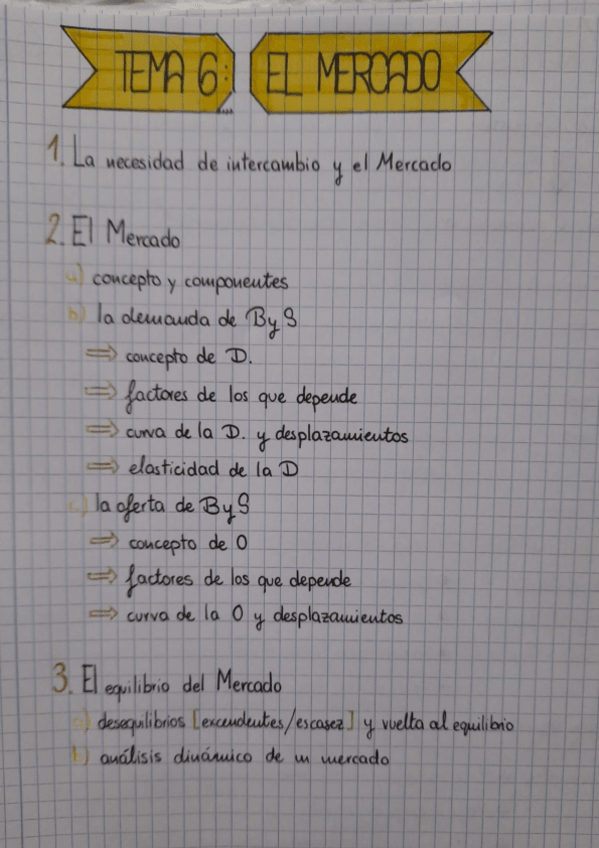 TEMA 6: EL MERCADO
1. La necesidad de intercambio y el Mercado
2. El Mercado
a) concepto y componentes
b) la demanda de B y S
⇒ concepto de D.
⇒ factores de los que depende
⇒ curva de la D. y desplazamientos
⇒ elasticidad de la D
c) la oferta de B y S
⇒ concepto de O
⇒ factores de los que depende
⇒ curva de la O y desplazamientos
3. El equilibrio del Mercado
a) desequilibrios [excendentes/escasez] y vuelta al equilibrio
b) análisis dinámico de un mercado